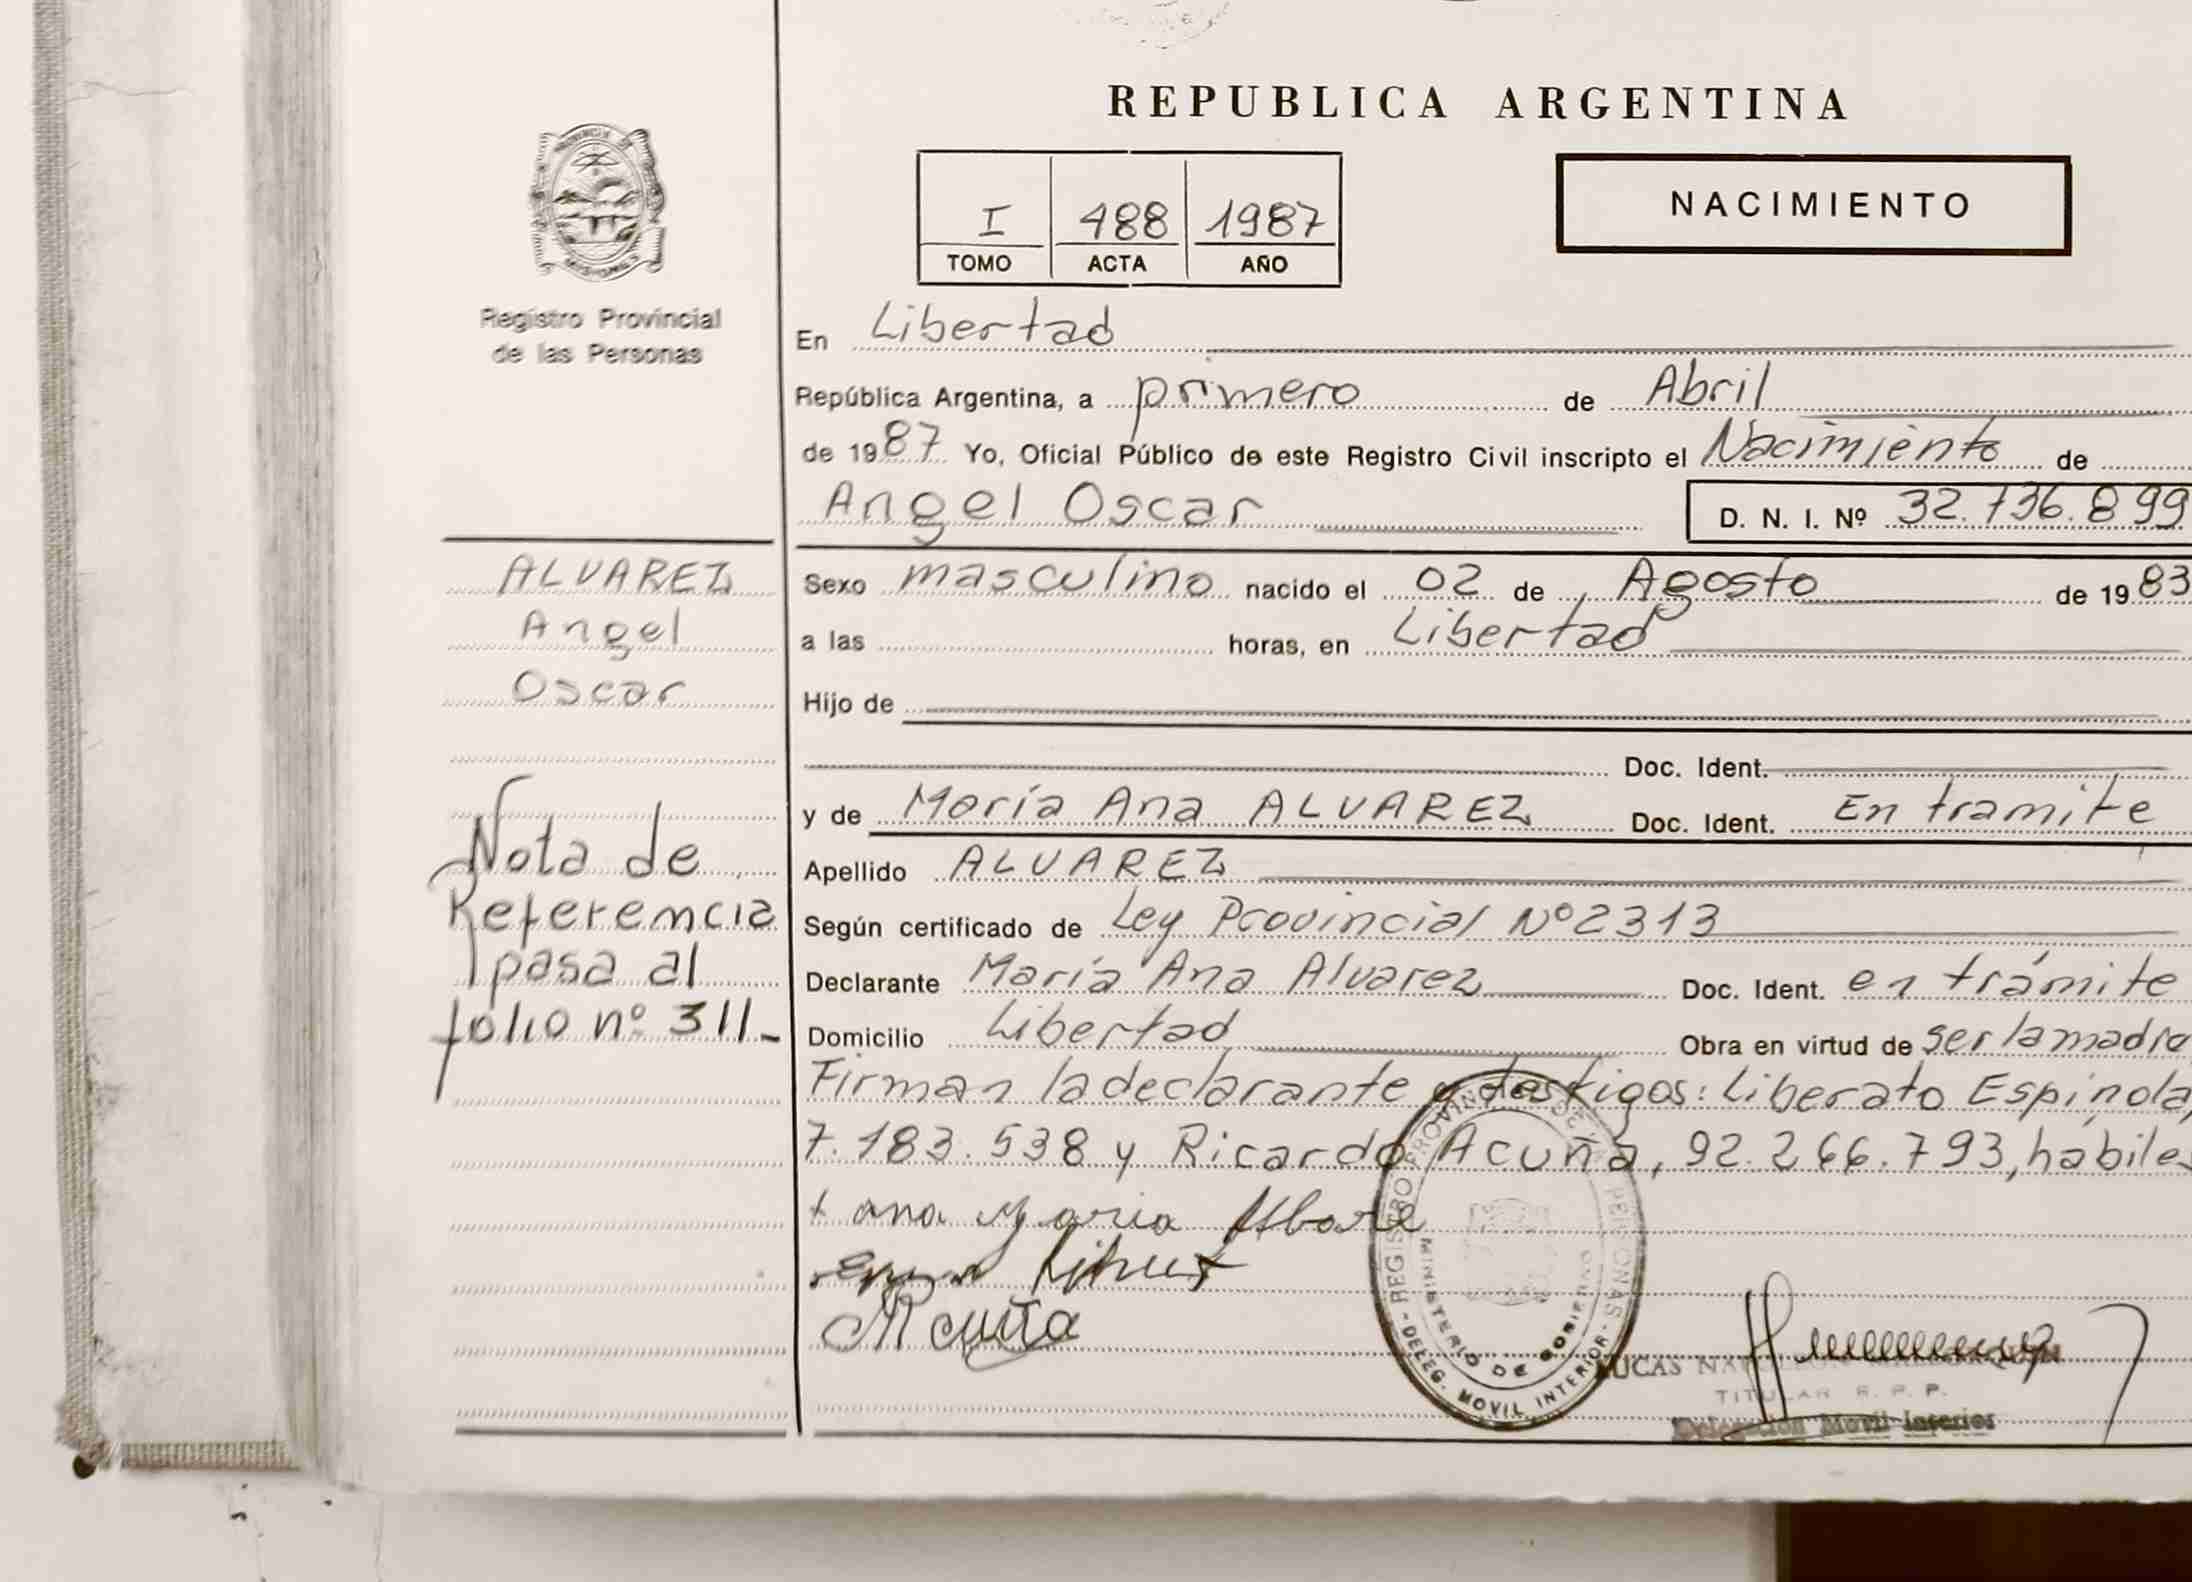 REPUBLICA ARGENTINA
NACIMIENTO
I 488 1987
TOMO ACTA AÑO
PROVINCIA DE
MISIONES
Registro Provincial
de las Personas
En Libertad
República Argentina, a primero de Abril
de 1987 Yo, Oficial Público de este Registro Civil inscripto el Nacimiento de
Angel Oscar D. N. I. Nº 32.736.899
ALVAREZ
Angel
Oscar
Sexo masculino nacido el 02 de Agosto de 1983
a las horas, en Libertad
Hijo de
Doc. Ident.
y de María Ana ALVAREZ Doc. Ident. En tramite
Apellido ALVAREZ
Según certificado de Ley Provincial Nº 2313
Declarante María Ana Alvarez Doc. Ident. en trámite
Domicilio Libertad Obra en virtud de ser la madre
Firman la declarante y testigos: Liberato Espínola,
7.183.538 y Ricardo Acuña, 92.266.793, hábiles
Nota de
Referencia
pasa al
folio nº 311.-
ana Maria
Acuña
REGISTRO PROVINCIAL DE LAS PERSONAS
MINISTERIO DE GOBIERNO
- DELEG. MOVIL INTERIOR -
LUCAS
TITULAR R. P. P.
Delegación Movil Interior